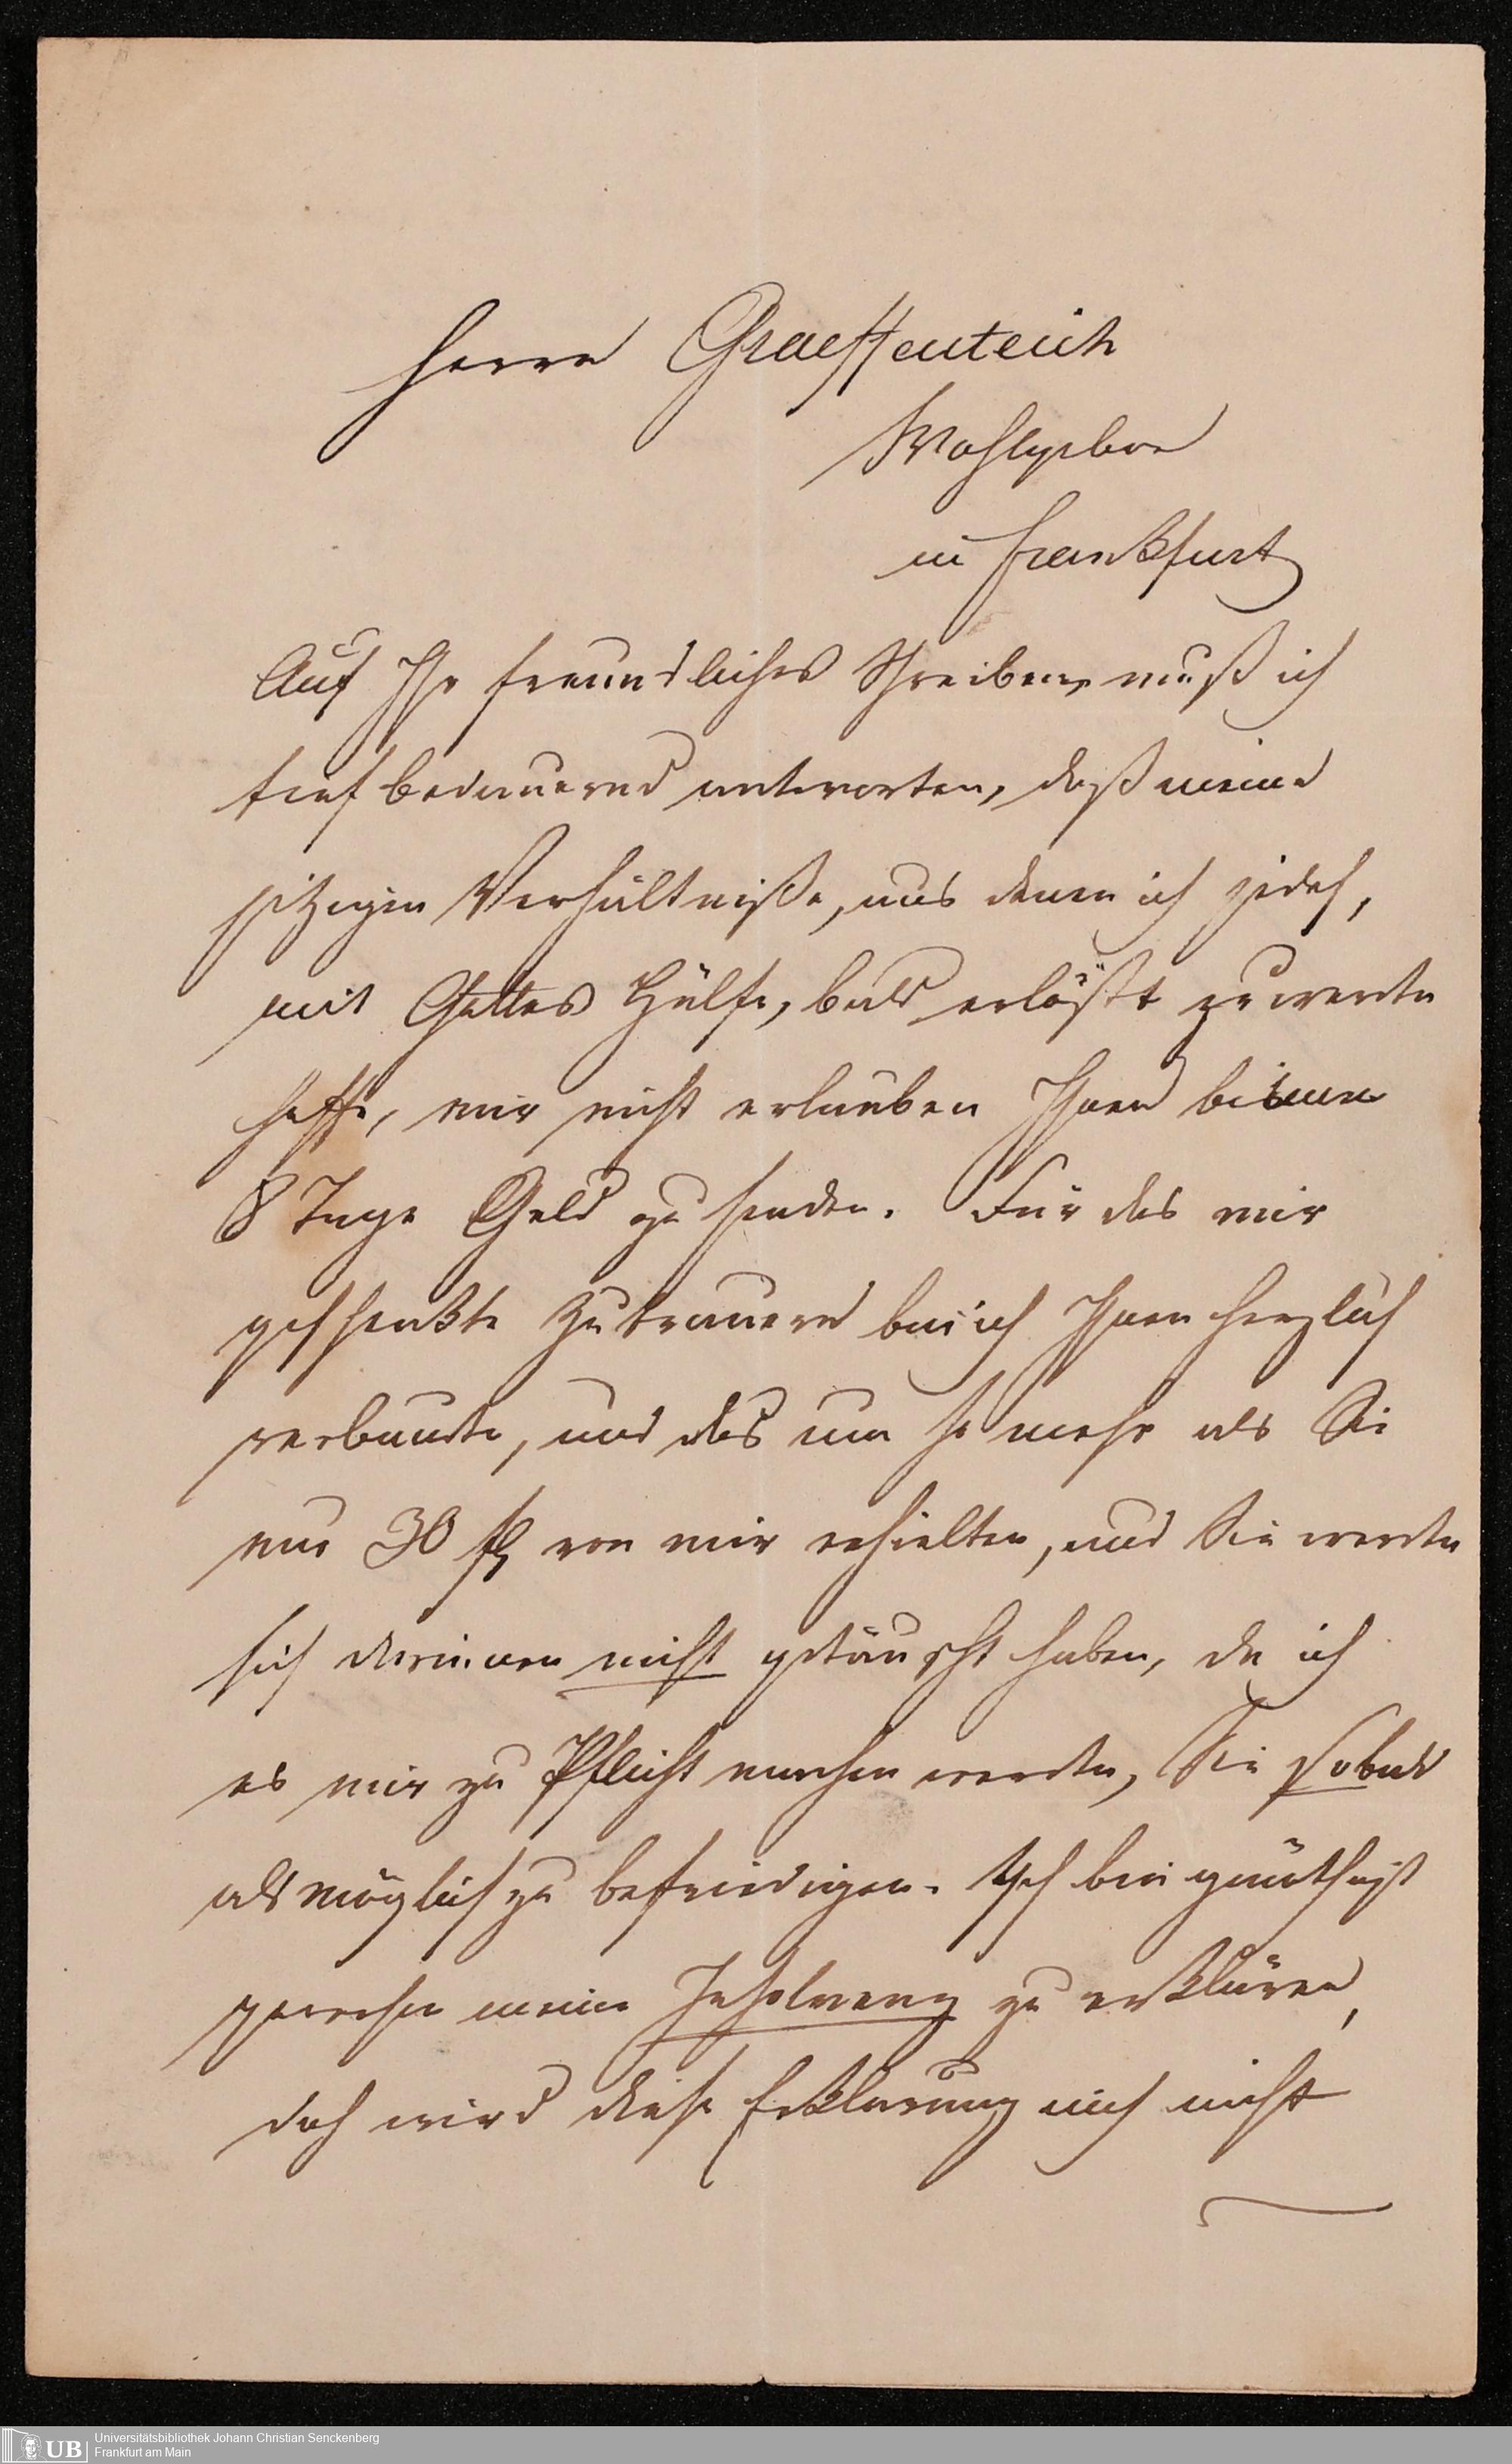 Herrn Graeffenteich
Wohlgeborn
in Frankfurt
Auf Ihr freundliches Schreiben, muß ich
tief bedauernd antworten, daß meine
jetzigen Verhältniße, aus denen ich jedoch,
mit Gottes Hülfe, bald erlößt zu werden
hoffe, mir nicht erlauben Ihnen binnen
8 Tage Geld zu senden. Für das mir
geschenkte Zutrauen bin ich Ihnen herzlich
verbunden, und das um so mehr als Sie
nur 30 fl von mir erhielten, und Sie werden
sich darinnen nicht getäuscht haben, da ich
es mir zu Pflicht machen werde, Sie sobald
als möglich zu befriedigen. Ich bin genöthigt
gewesen meine Insolvenz zu erklären,
doch wird diese Erklärung mich nicht
Universitätsbibliothek Johann Christian Senckenberg
Frankfurt am Main
UB